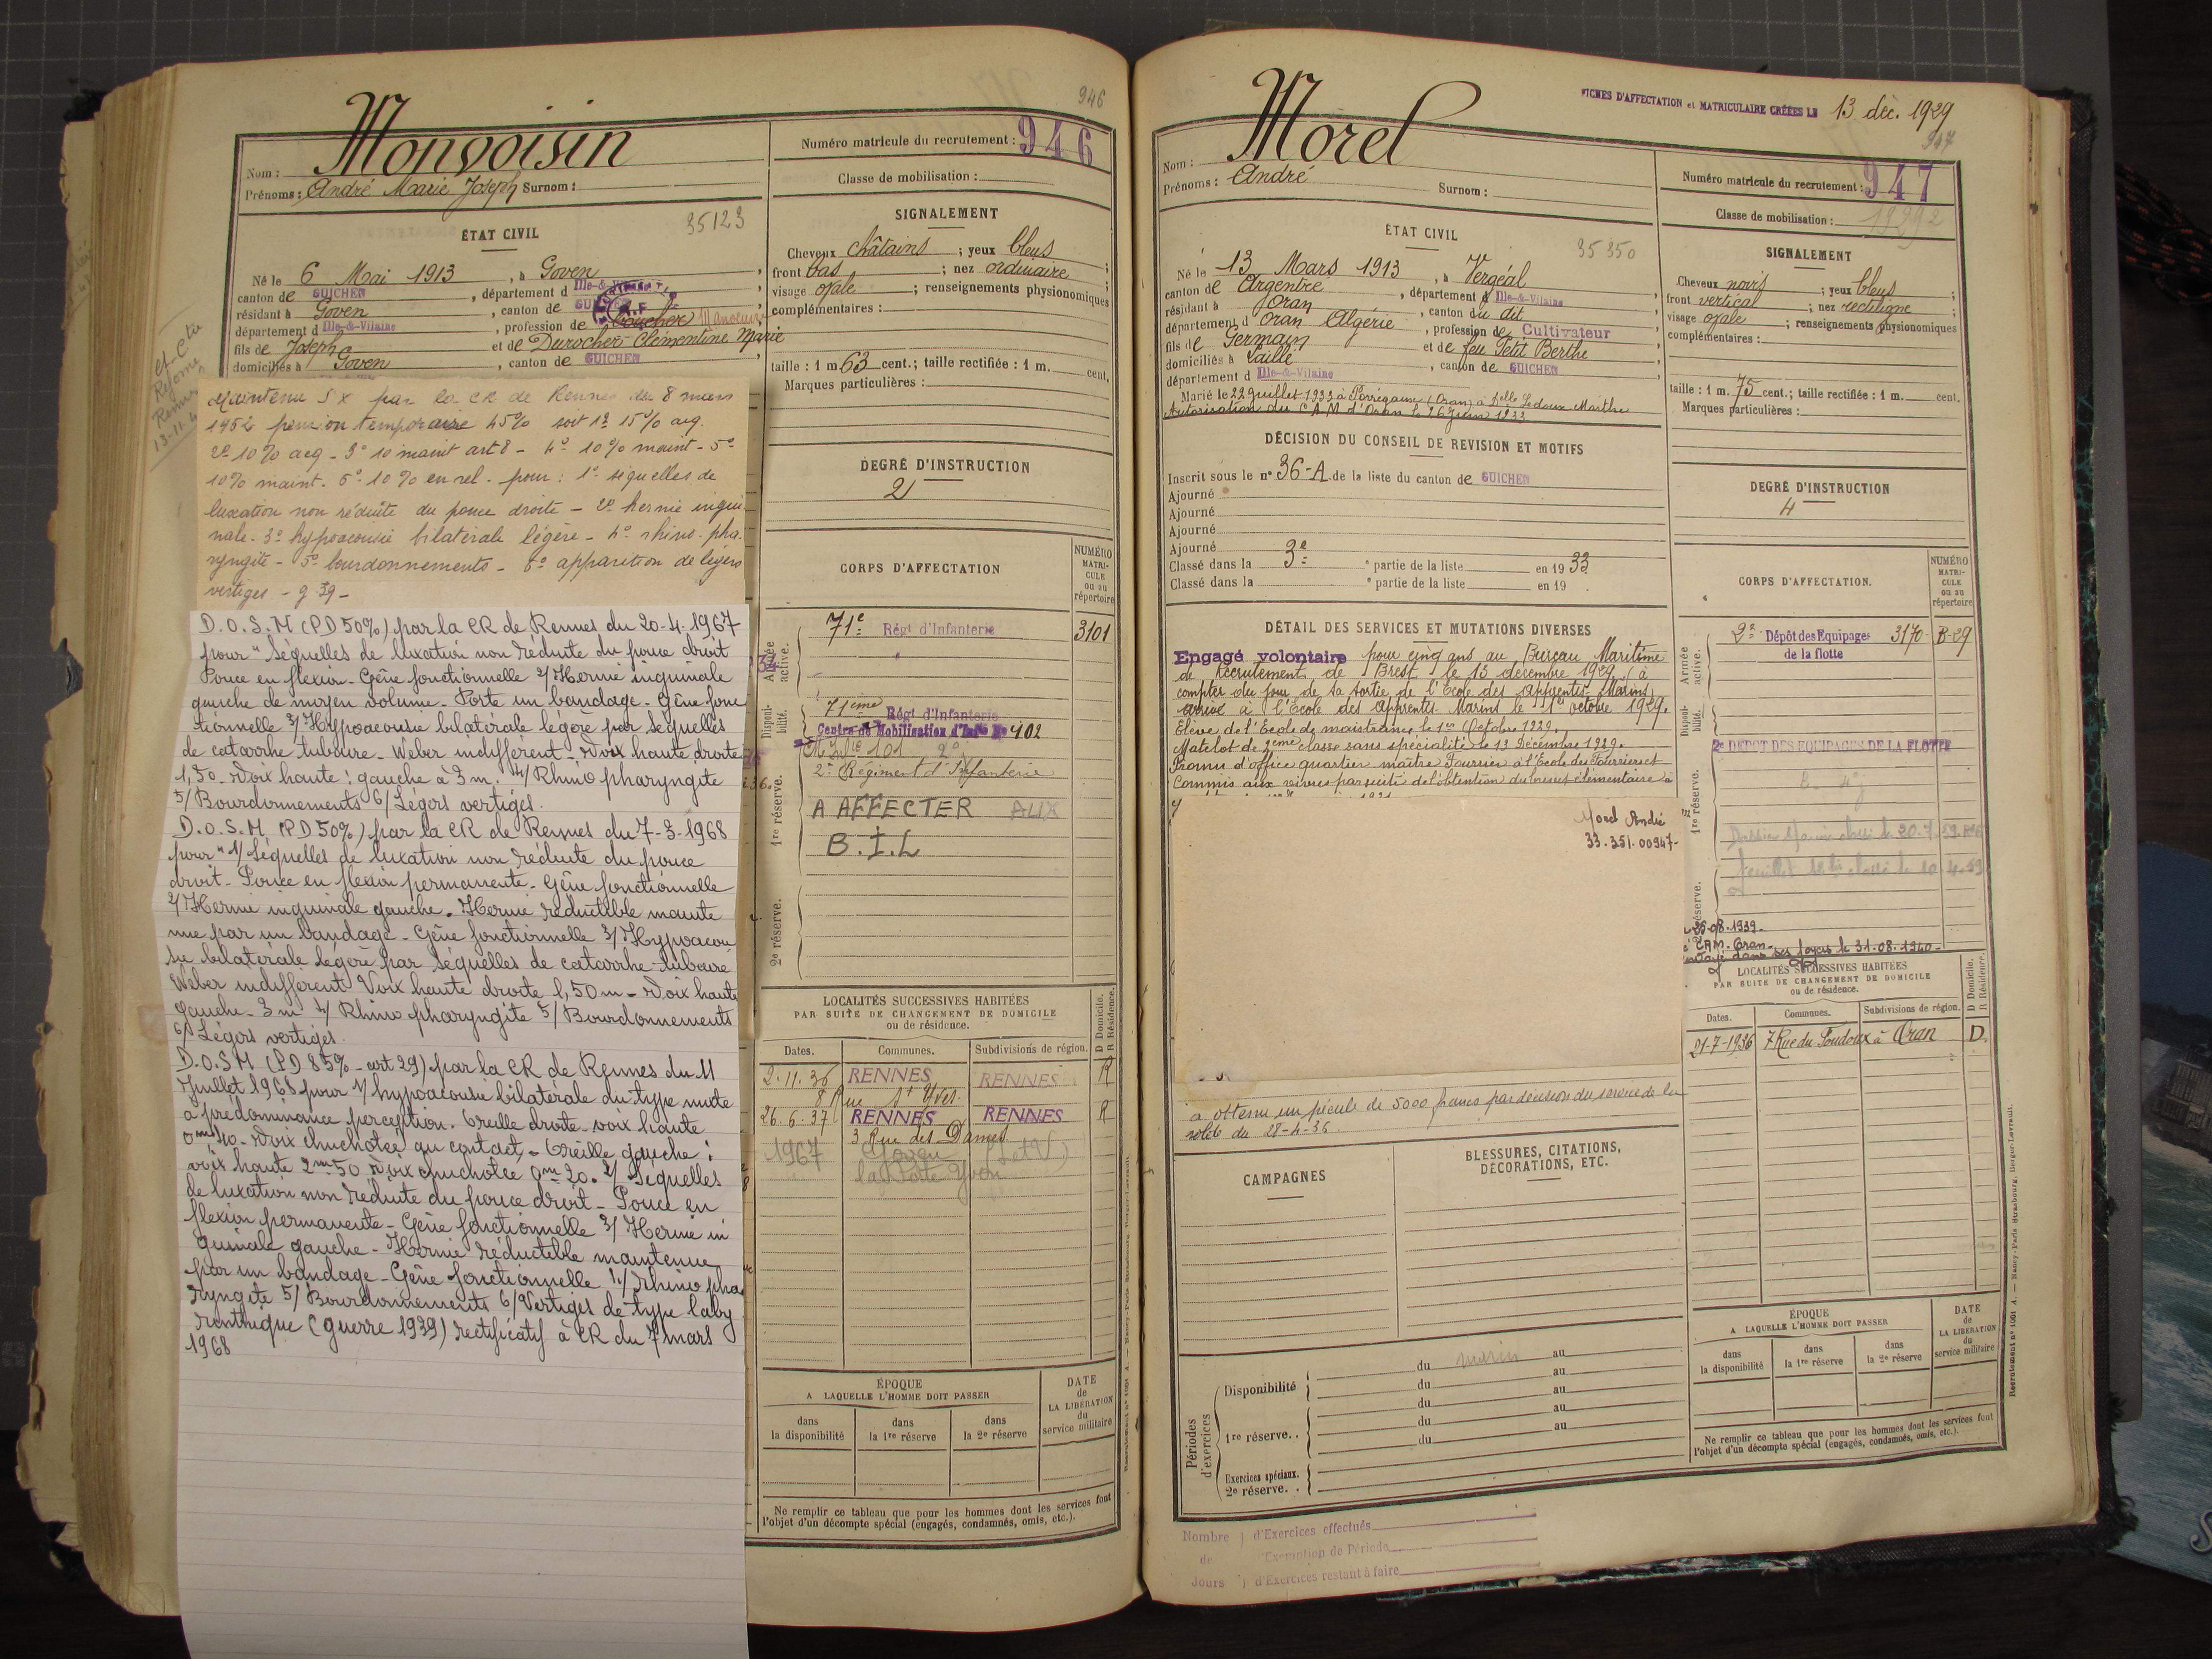 946
Nom : Monvoisin
Prénoms : André Marie Joseph Surnom :
Numéro matricule du recrutement : 946
Classe de mobilisation :
ÉTAT CIVIL
35123
Né le 6 Mai 1913, à Goven
canton de GUICHEN, département d Ille-&-Vilaine
résidant à Goven, canton de GUICHEN
département d Ille-&-Vilaine, profession de Boucher Manoeuvre
fils de Joseph et de Durocher Clémentine Marie
domiciliés à Goven, canton de GUICHEN
SIGNALEMENT
Cheveux châtains ; yeux bleus ;
front bas ; nez ordinaire
visage ovale ; renseignements physionomiques
complémentaires :
taille : 1 m 63 cent.; taille rectifiée : 1 m. cent.
Marques particulières :
Maintenu SX par la CR de Rennes du 8 mars
1952 pension temporaire 45% soit 1º 15% aeg.
2º 10% aeg - 3º 10 maint art 8 - 4º 10% maint - 5º
10% maint. 6º 10% en rel. pour : 1º séquelles de
luxation non réduite du pouce droite - 2º hernie ingui-
nale - 3º hypoacousie bilatérale légère - 4º rhino-pha-
ryngite - 5º bourdonnements - 6º apparition de légers
vertiges - g 39 -
D.O.S.M (PD 50%) par la CR de Rennes du 20-4-1967
pour " Séquelles de luxation non réduite du pouce droit
Pouce en flexion - Gêne fonctionnelle 2/ Hernie inguinale
gauche de moyen volume - Porte un bandage - Gêne fonc
tionnelle 3/ Hypoacousie bilatérale légère par séquelles
de catarrhe tubaire - Weber indifférent - Voix haute droite
1,50 - Voix haute : gauche à 3 m. 4/ Rhino pharyngite
5/ Bourdonnements 6/ Légers vertiges.
D.O.S.M (PD 50%) par la CR de Rennes du 7-3-1968
pour " 1/ Séquelles de luxation non réduite du pouce
droit - Pouce en flexion permanente - Gêne fonctionnelle
2/ Hernie inguinale gauche. Hernie réductible mainte
nue par un bandage - Gêne fonctionnelle 3/ Hypoacou
sie bilatérale légère par séquelles de catarrhe tubaire
Weber indifférent Voix haute droite 1,50 m - Voix haute
gauche - 3 m 4/ Rhino pharyngite 5/ Bourdonnements
6/ Légers vertiges.
D.O.S.M (PD 85% - art 29) par la CR de Rennes du 11
Juillet 1968 pour 1/ hypoacousie bilatérale du type mixte
à prédominance perception. Oreille droite - voix haute
0m40 - Voix chuchotée au contact - Oreille gauche :
voix haute 2m50 Voix chuchotée 0m20. 2/ Séquelles
de luxation non réduite du pouce droit - Pouce en
flexion permanente - Gêne fonctionnelle 3/ Hernie in
guinale gauche - Hernie réductible maintenue
par un bandage - Gêne fonctionnelle 4/ Rhino pha
ryngite 5/ Bourdonnements 6/ Vertiges de type laby
rinthique (guerre 1939) rectificatif à CR du 7 mars
1968
DEGRÉ D'INSTRUCTION
2
CORPS D'AFFECTATION
NUMÉRO MATRICULE ou au répertoire
Armée active.
71e Régt d'Infanterie 3101
Disponibilité.
71ème Régt d'Infanterie
Centre de Mobilisation d'Infie No 402
2e Régiment d'Infanterie
1re réserve.
A AFFECTER AUX
B.I.L
2e réserve.
LOCALITÉS SUCCESSIVES HABITÉES
PAR SUITE DE CHANGEMENT DE DOMICILE
ou de résidence.
D Domicile. R Résidence.
Dates. Communes. Subdivisions de région.
2.11.36 RENNES RENNES R
8 Rue St Yves
26.6.37 RENNES RENNES R
3 Rue des Dames
1967 Goven (I et V)
la Porte Yvon
ÉPOQUE
A LAQUELLE L'HOMME DOIT PASSER
dans la disponibilité
dans la 1re réserve
dans la 2e réserve
DATE de LA LIBÉRATION du service militaire
Ne remplir ce tableau que pour les hommes dont les services font
l'objet d'un décompte spécial (engagés, condamnés, omis, etc.).
FICHES D'AFFECTATION et MATRICULAIRE CRÉÉES LE 13 déc. 1929
947
Nom : Morel
Prénoms : André Surnom :
Numéro matricule du recrutement : 947
Classe de mobilisation :
ÉTAT CIVIL
35350
Né le 13 Mars 1913, à Vergéal
canton de Argentré, département d Ille-&-Vilaine
résidant à Oran, canton du dit
département d Oran Algérie, profession de Cultivateur
fils de Germain et de feu Petit Berthe
domiciliés à Laillé, canton de GUICHEN
département d Ille-&-Vilaine
Marié le 22 Juillet 1933 à Perrégaux (Oran) à Melle Ledoux Marthe
Autorisation du C.A.M d'Oran le 26 Juin 1933
SIGNALEMENT
Cheveux noirs ; yeux bleus ;
front vertical ; nez rectiligne ;
visage ovale ; renseignements physionomiques
complémentaires :
taille : 1 m. 75 cent.; taille rectifiée : 1 m. cent.
Marques particulières :
DÉCISION DU CONSEIL DE REVISION ET MOTIFS
Inscrit sous le nº 36-A de la liste du canton de GUICHEN
Ajourné
Ajourné
Ajourné
Ajourné
Classé dans la 3e partie de la liste en 1933
Classé dans la e partie de la liste en 19 .
DEGRÉ D'INSTRUCTION
4
DÉTAIL DES SERVICES ET MUTATIONS DIVERSES
Engagé volontaire pour cinq ans au Bureau Maritime
de Recrutement de Brest le 13 décembre 1929 (à
compter du jour de sa sortie de l'Ecole des Apprentis-Marins)
arrivé à l'Ecole des Apprentis Marins le 1er octobre 1929.
Elève de l'Ecole de maistrance le 1er Octobre 1929.
Matelot de 2ème classe sans spécialité le 13 Décembre 1929.
Promu d'office quartier maître Fourrier à l'Ecole des Fourriers et
Commis aux vivres par suite de l'obtention du brevet élémentaire à
Morel André
33.351.00947-
a obtenu un pécule de 5000 francs par décision du service de la
solde du 28-4-36.
CORPS D'AFFECTATION.
NUMÉRO MATRICULE ou au répertoire
Armée active.
2e Dépôt des Equipages de la flotte 3170- B-29
Disponibilité.
2e DEPOT DES EQUIPAGES DE LA FLOTTE
1re réserve.
2e réserve.
26-08-1939-
CAM-Oran-
ses foyers le 31-08-1940-
LOCALITÉS SUCCESSIVES HABITÉES
PAR SUITE DE CHANGEMENT DE DOMICILE
ou de résidence.
D Domicile. R Résidence.
Dates. Communes. Subdivisions de région.
21-7-1936 7 Rue du Poudoux à Oran D.
CAMPAGNES
BLESSURES, CITATIONS,
DÉCORATIONS, ETC.
Périodes d'exercices
Disponibilité
du au
du au
du au
1re réserve.
du au
du
Exercices spéciaux.
2e réserve.
ÉPOQUE
A LAQUELLE L'HOMME DOIT PASSER
dans la disponibilité
dans la 1re réserve
dans la 2e réserve
DATE de LA LIBÉRATION du service militaire
Ne remplir ce tableau que pour les hommes dont les services font
l'objet d'un décompte spécial (engagés, condamnés, omis, etc.).
Nombre de Jours
d'Exercices effectués
d'Exemption de Période
d'Exercices restant à faire
Recrutement nº 1001 A. — Nancy-Paris-Strasbourg, Berger-Levrault.